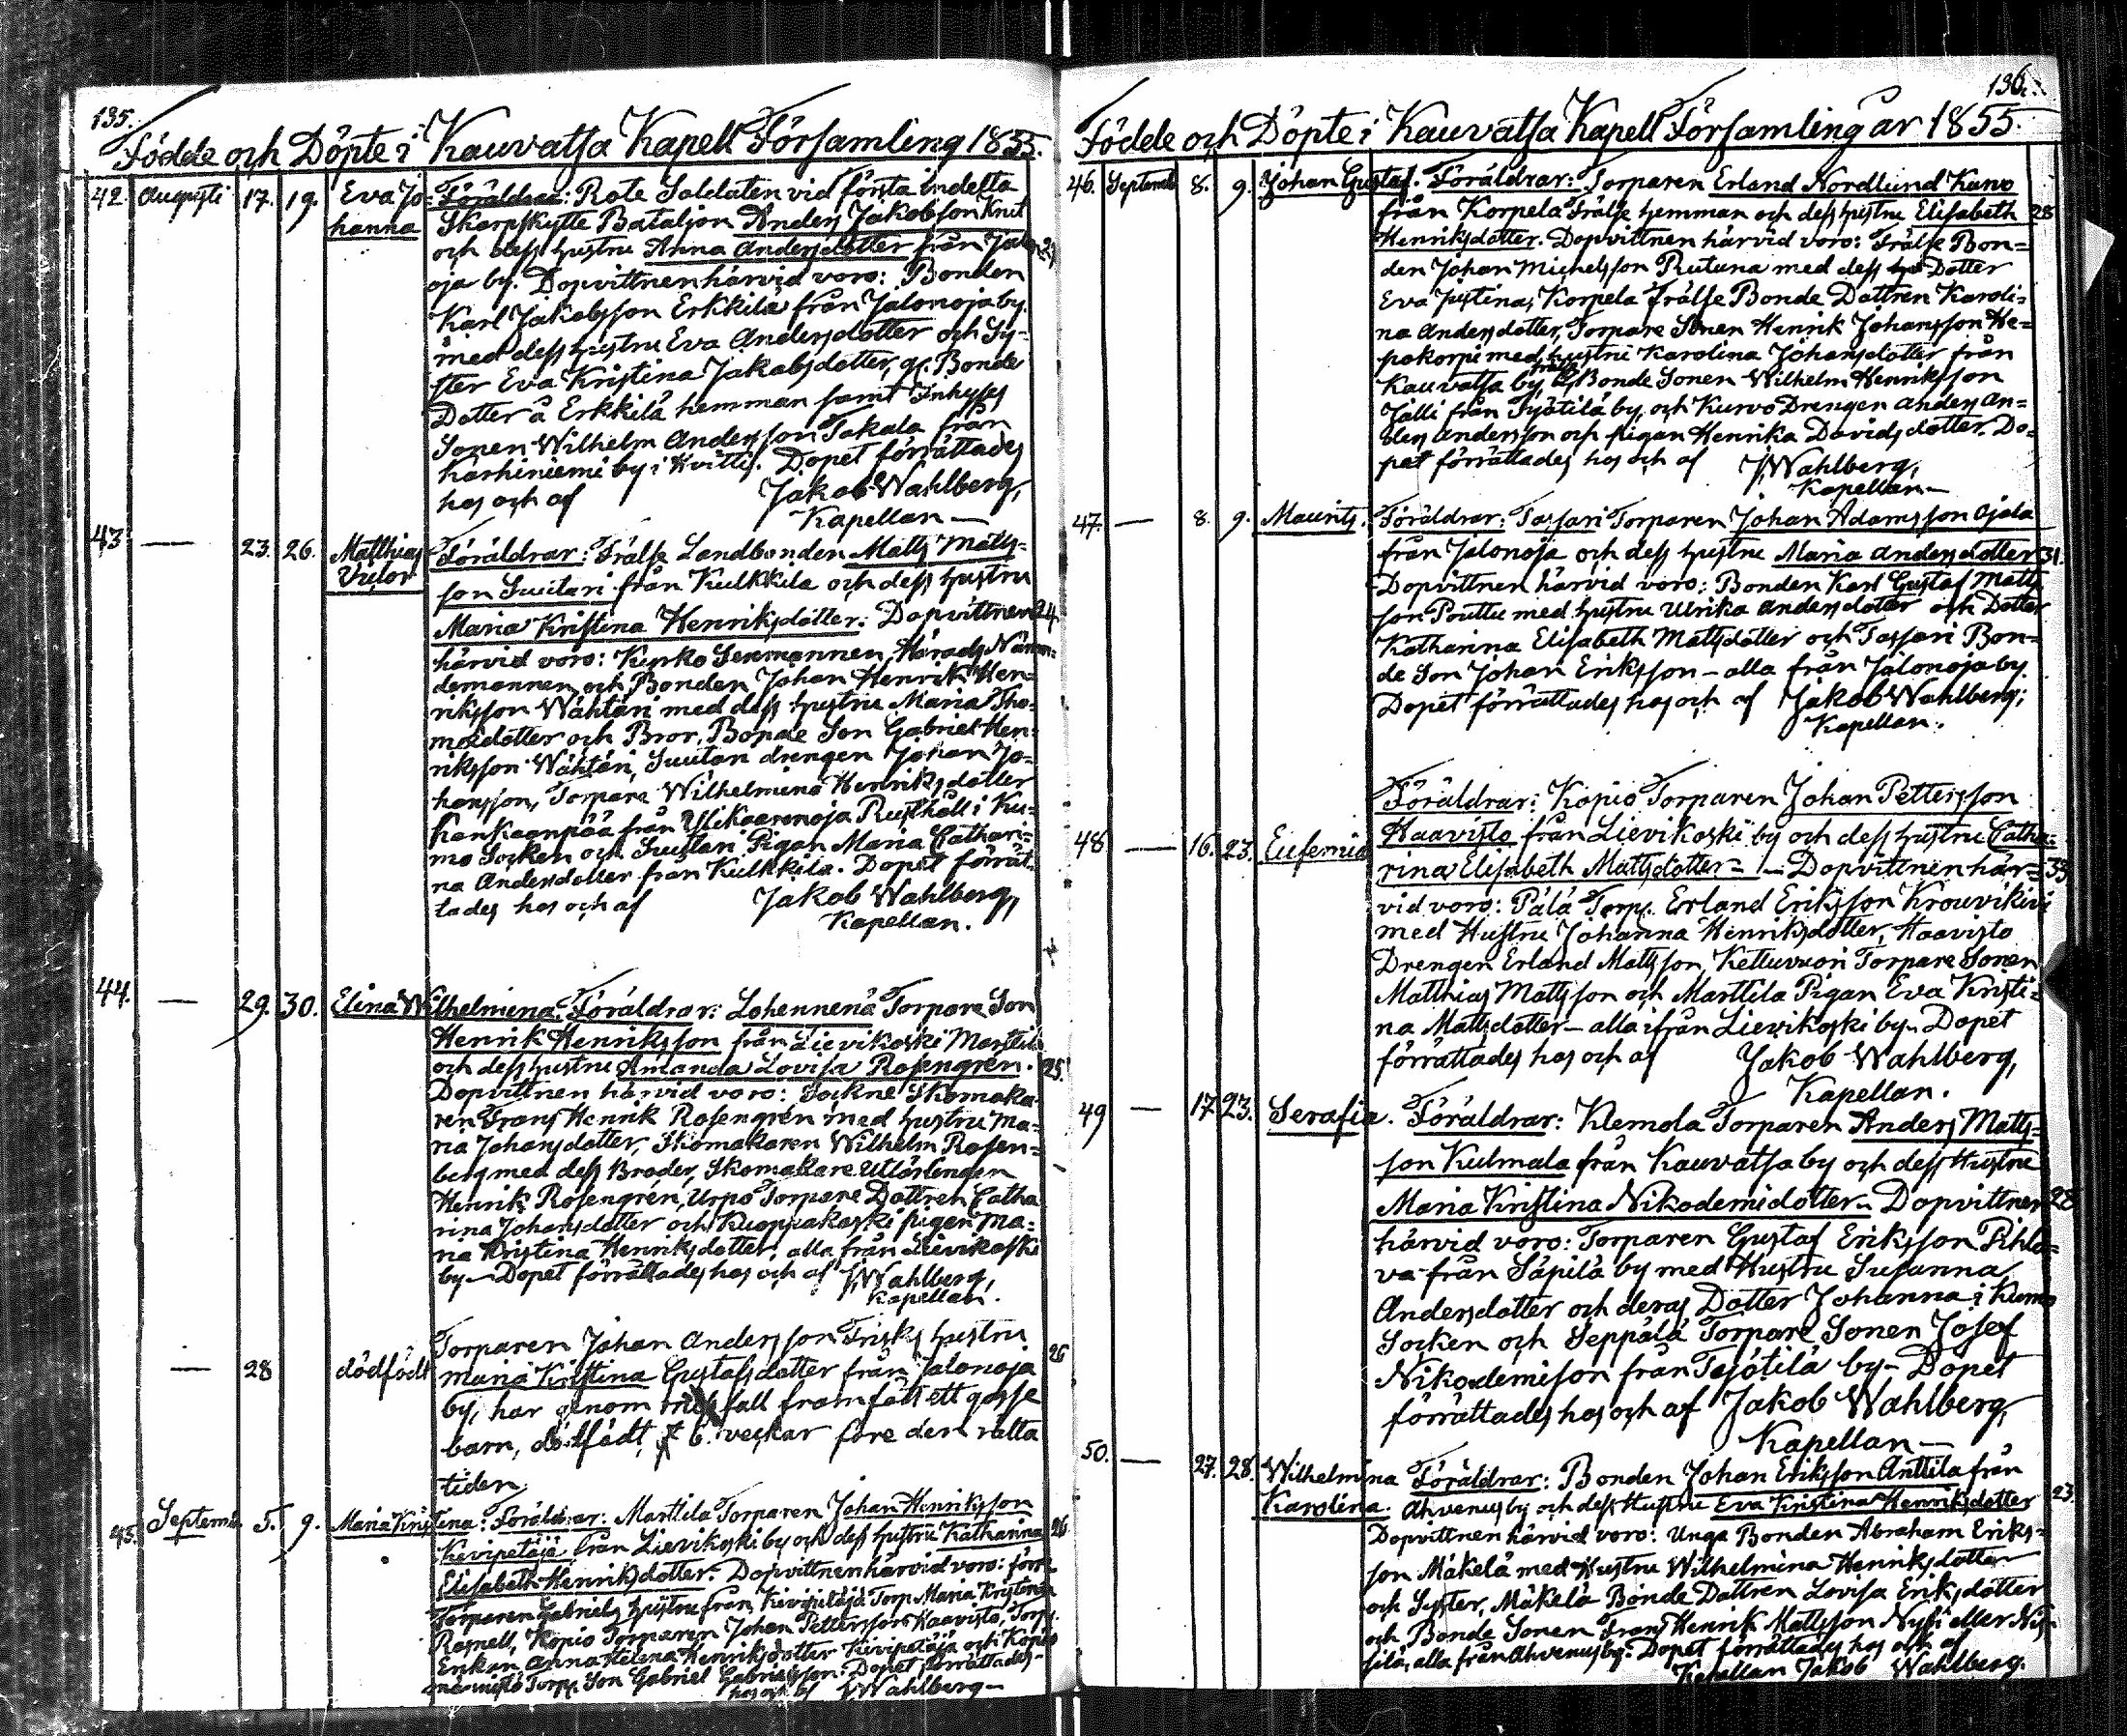 135.
Födde och Döpte i Kauvatsa Kapell Församling 1855.
42. Augusti 17. 19. Eva Jo- Föräldrar: Rote Soldaten vid första Indelta
hanna Skarpskytte Bataljon Anders Jakobsson Knut
och dess hustru Anna Andersdotter från Jalon
oja by. Dopvittnen härvid voro: Bonden
Karl Jakobsson Erkkilä från Jalonoja by.
med dess hustru Eva Andersdotter och Sy-
ster Eva Kristina Jakobsdotter, gf. Bonde
Dotter å Erkkilä hemman samt Inhyses
Sonen Wilhelm Andersson Takala från
Karhiniemi by i Hvittis. Dopet förrättades
hos och af Jakob Wahlberg,
Kapellan —
43 — 23. 26. Matthias Föräldrar: Frälse Landbonden Matts Matts-
Victor son Suutari från Kulkkila och dess hustru
Maria Kristina Henriksdotter. Dopvittnen 24.
härvid voro: Kyrko Sexmannen, Härads Näm-
demannen och Bonden Johan Henrik Hen-
riksson Wähtäri med dess hustru Maria Tho-
medotter och Bror, Bonde Son Gabriel Hen-
riksson Wähtäri, Suutari drengen Johan Jo-
hansson, Torpare Wilhelmina Henriksdotter
Kankaanpää från Ylikaarenoja Rusthåll i Ku-
mo Socken och Suutari Pigan Maria Cathari-
na Andersdotter från Kulkkila. Dopet förrät-
tades hos och af Jakob Wahlberg,
Kapellan.
44. — 29. 30. Elina Wilhelmina. Föräldrar: Lohennenä Torpare Son
Henrik Henriksson från Lievikoski Marttila
och dess hustru Amanda Lovisa Rosengrén. 25.
Dopvittnen härvid voro: Sockne Skomaka-
ren Frans Henrik Rosengrén med hustru Ma-
ria Johansdotter, Skomakaren Wilhelm Rosen-
berg med dess Broder, Skomakare Utlärlingen
Henrik Rosengrén, Urpo Torpare Dottren Catha
rina Johansdotter och Kuoppakoski pigan Ma-
ria Kristina Henriksdotter, alla från Lievikoski
by — Dopet förrättades hos och af J Wahlberg,
Kapellan.
— 28 dödfödt Torparen Johan Andersson Frisks hustru
Maria Kristina Gustafsdotter från Jalonoja 26
by, har genom fall framfödt ett gosse
barn, dödfödt, 6. veckar före den rätta
tiden
45. Septemb. 5. 9. Maria Kristina: Föräldrar: Marttila Torparen Johan Henriksson
Kivipetäjä från Lievikoski by och dess hustru Katharina 26.
Elisabeth Henriksdotter. Dopvittnen härvid voro: förre
Torparen Gabriels hustru från Kivipetäjä Torp Maria Kristina
Rosnell, Kopio Torparen Johan Pettersson Haavisto, Torp.
Enkan Anna Helena Henriksdotter Kivipetäjä och Kopio
Torp. Son Gabriel Gabrielsson. Dopet förrättades
hos och af J Wahlberg —
136.
Födde och Döpte i Kauvatsa Kapell Församling år 1855.
46. Septemb 8. 9. Johan Gustaf. Föräldrar: Torparen Erland Nordlund Kuno
från Korpela Frälse hemman och dess hustru Elisabeth 28
Henriksdotter. Dopvittnen härvid voro: Frälse Bon-
den Johan Michelsson Rutuna med dess Dotter
Eva Justina, Korpela Frälse Bonde Dottren Karoli-
na Andersdotter, Torpare Sonen Henrik Johansson He-
pokorpi med hustru Karolina Johansdotter från
Kauvatsa by, frälse Bonde Sonen Wilhelm Henriksson
Jälli från Työtilä by och Kurvo Drengen Anders An-
ders Andersson och pigan Henrika Davidsdotter. Do-
pet förrättades hos och af J Wahlberg,
Kapellan —
47. — 8. 9. Mauritz. Föräldrar: Tassari Torparen Johan Adamsson Ojala
från Jalonoja och dess hustru Maria Andersdotter 31.
Dopvittnen härvid voro: Bonden Karl Gustaf Matts
son Pouttu med hustru Ulrika Andersdotter och Dotter
Katharina Elisabeth Mattsdotter och Tassari Bon-
de Son Johan Eriksson — alla från Jalonoja by.
Dopet förrättades hos och af Jakob Wahlberg;
Kapellan.
Föräldrar: Kopio Torparen Johan Pettersson
48 — 16. 23. Eufemia Haavisto från Lievikoski by och dess hustru Catha-
rina Elisabeth Mattsdotter — Dopvittnen här- 33
vid voro: Pälä Torp. Erland Eriksson Krouvikivi
med Hustru Johanna Henriksdotter, Haavisto
Drengen Erland Mattsson, Kettuvuori Torpare Sonen
Matthias Mattsson och Marttila Pigan Eva Kristi-
na Mattsdotter — alla ifrån Lievikoski by. Dopet
förrättades hos och af Jakob Wahlberg,
Kapellan.
49 — 17 23. Serafia. Föräldrar: Klemola Torparen Anders Matts-
son Kulmala från Kauvatsa by och dess Hustru
Maria Kristina Nikodemidotter — Dopvittnen 28
härvid voro: Torparen Gustaf Eriksson Pihla-
va från Säpilä by med Hustru Susanna
Andersdotter och deras Dotter Johanna i Kumo
Socken och Seppälä Torpare Sonen Josef
Nikodemison från Työtilä by — Dopet
förrättades hos och af Jakob Wahlberg,
Kapellan —
50. — 27. 28. Wilhelmina Föräldrar: Bonden Johan Eriksson Anttila från
Karolina. Ahvenus by och dess Hustru Eva Kristina Henriksdotter 23.
Dopvittnen härvid voro: Unga Bonden Abraham Eriks-
son Mäkelä med Hustru Wilhelmina Henriksdotter
och Syster, Mäkelä Bonde Dottren Lovisa Eriksdotter
och Bonde Sonen Frans Henrik Mattsson Nysi eller Nis-
silä, alla från Ahvenus by. Dopet förrättades hos och af
Kapellan Jakob Wahlberg.